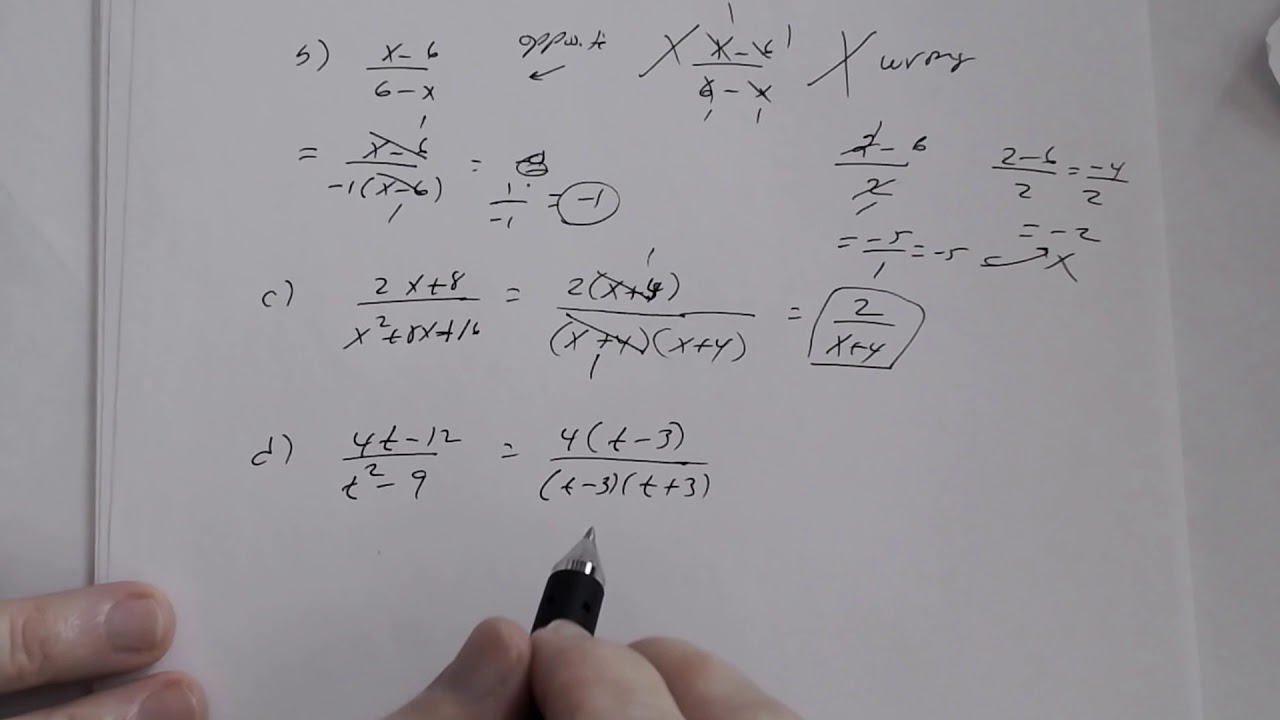 b) x-6/6-x opposite X x-6/6-x X wrong
= x-6/-1(x-6) = 1/-1 = -1
2-6/2 2-6/2 = -4/2
= -5/1 = -5 = -2 X
c) 2x+8/x²+8x+16 = 2(x+4)/(x+4)(x+4) = 2/x+4
d) 4t-12/t²-9 = 4(t-3)/(t-3)(t+3)